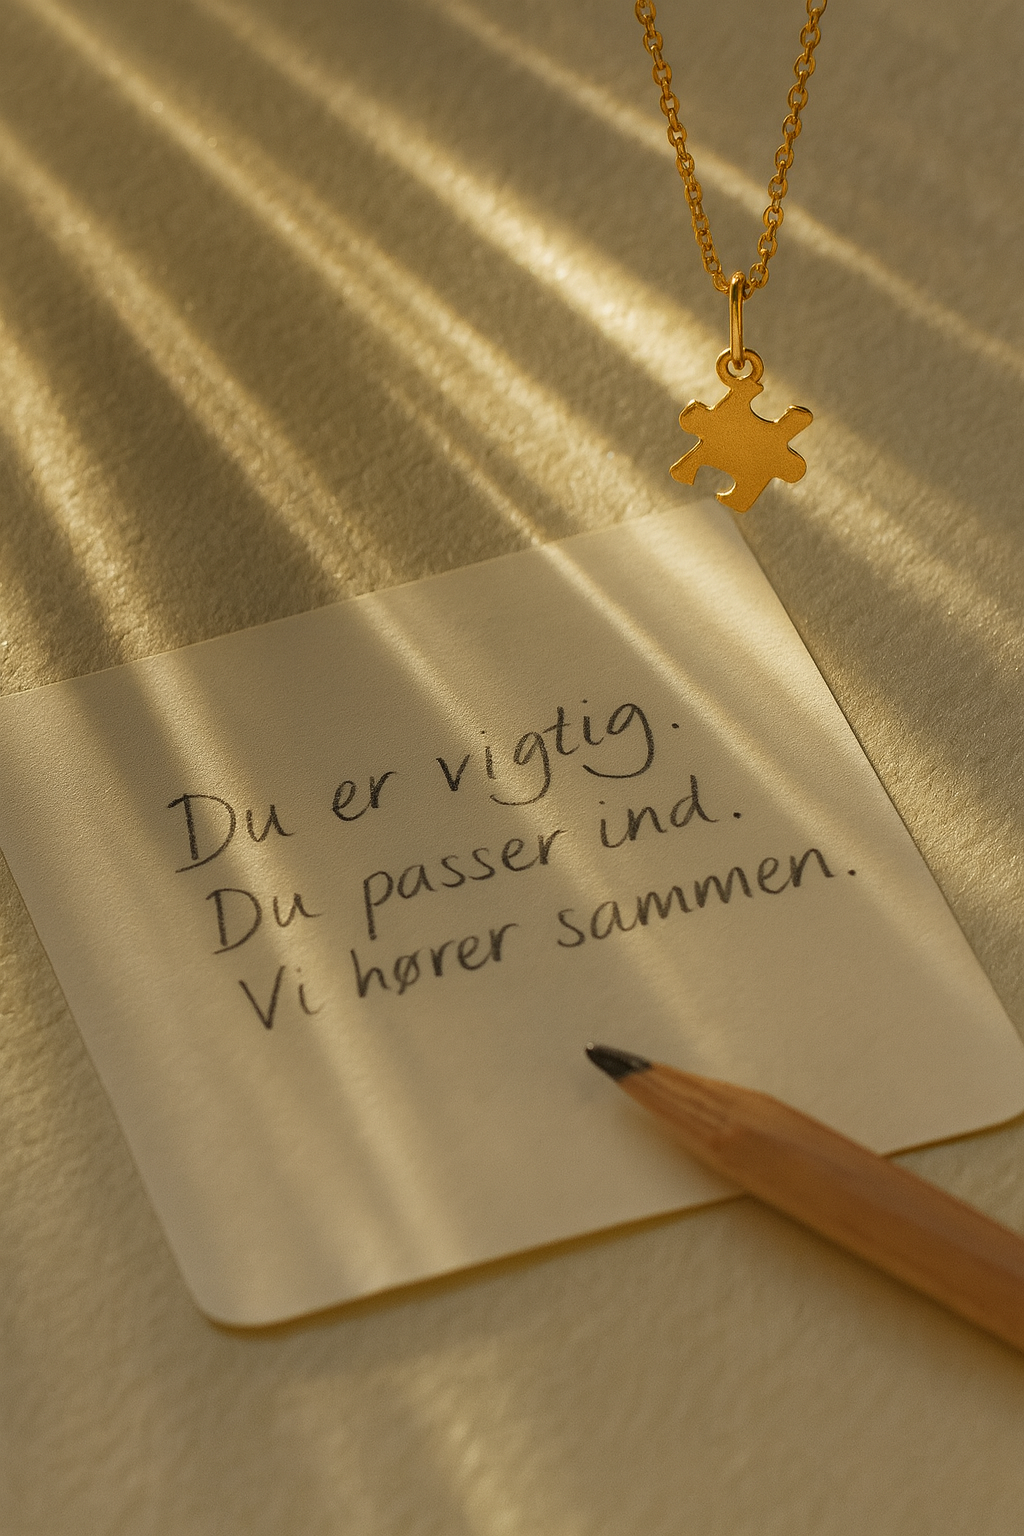 Du er vigtig.
Du passer ind.
Vi hører sammen.